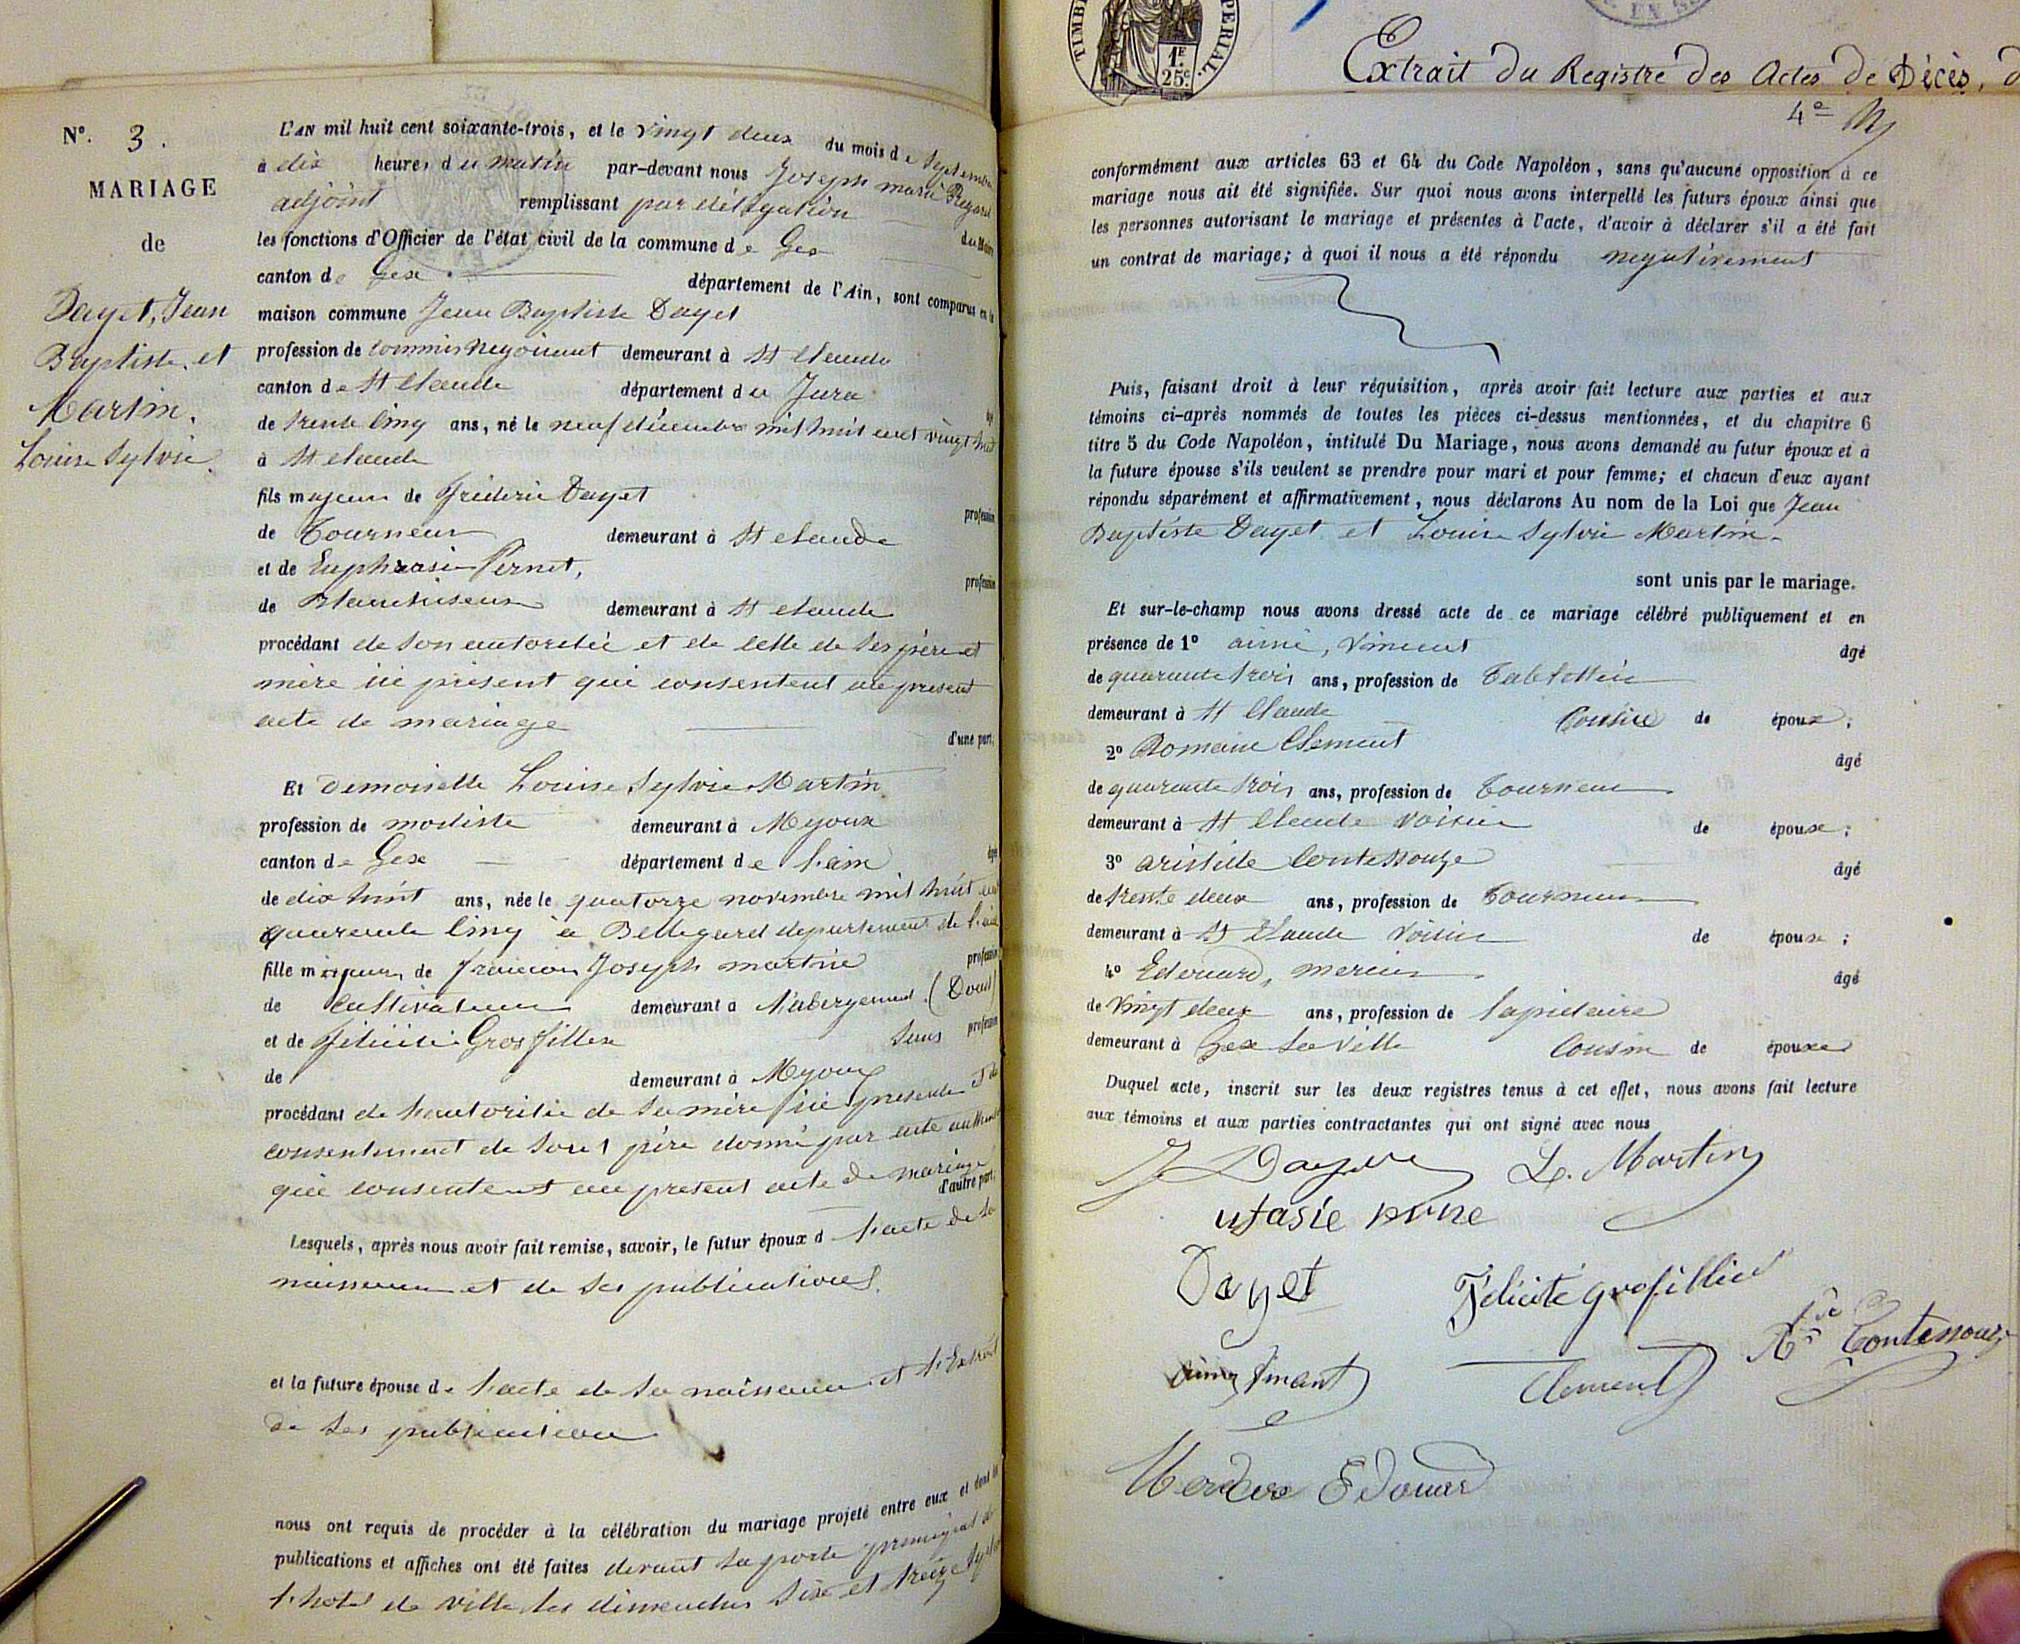 N°. 3.
MARIAGE
de
Dayet, Jean
Baptiste et
Martin.
Louise Sylvie.
L'AN mil huit cent soixante-trois, et le vingt deux du mois de Septembre
à dix heures du matin par-devant nous Joseph marie
adjoint remplissant par délégation du Maire
les fonctions d'Officier de l'état civil de la commune de Gex
canton de Gex département de l'Ain, sont comparus en la
maison commune Jean Baptiste Dayet
profession de commis négociant demeurant à St Claude
canton de St Claude département du Jura
de trente cinq ans, né le neuf décembre mil huit cent vingt huit
à St Claude
fils majeur de Fréderic Dayet profession
de Tourneur demeurant à St Claude
et de Euphrasie Pernet, profession
de Blanchiseuse demeurant à St Claude
procédant de son autoritée et de celle de ses père et
mère ici présent qui consentent au présent
acte de mariage d'une part;
Et Demoiselle Louise Sylvie Martin
profession de modiste demeurant à Mijoux
canton de Gex département de l'ain âgée
de dix huit ans, née le quatorze novembre mil huit cent
quarente cinq à Bellegard département de l'ain
fille mineure de francois Joseph martin profession
de cultivateur demeurant à l'abergement (Doubs)
et de félicité Grosfillex sans profession
de demeurant à Mijoux
procédant de l'autoritée de sa mère ici présente & du
consentement de son père donné par acte authentique
qui consentent au présent acte de mariage d'autre part.
Lesquels, après nous avoir fait remise, savoir, le futur époux d l'acte de sa
naissance et de ses publications.
et la future épouse de l'acte de sa naissance et l'Extrait
de ses publication
nous ont requis de procéder à la célébration du mariage projeté entre eux et dont les
publications et affiches ont été faites devant la porte principal de
l'hotel de ville les dimanches six et treize
TIMBRE IMPERIAL.
1F. 25c.
Extrait du Registre des Actes de Décès, d
4e
conformément aux articles 63 et 64 du Code Napoléon, sans qu'aucune opposition à ce
mariage nous ait été signifiée. Sur quoi nous avons interpellé les futurs époux ainsi que
les personnes autorisant le mariage et présentes à l'acte, d'avoir à déclarer s'il a été fait
un contrat de mariage; à quoi il nous a été répondu négativement
Puis, faisant droit à leur réquisition, après avoir fait lecture aux parties et aux
témoins ci-après nommés de toutes les pièces ci-dessus mentionnées, et du chapitre 6
titre 5 du Code Napoléon, intitulé Du Mariage, nous avons demandé au futur époux et à
la future épouse s'ils veulent se prendre pour mari et pour femme; et chacun d'eux ayant
répondu séparément et affirmativement, nous déclarons Au nom de la Loi que Jean
Baptiste Dayet et Louise Sylvie Martin
sont unis par le mariage.
Et sur-le-champ nous avons dressé acte de ce mariage célébré publiquement et en
présence de 1° aimé, Vincent âgé
de quarante trois ans, profession de Tablettier
demeurant à St Claude Cousin de époux;
2° Romain Clement âgé
de quarante trois ans, profession de Tourneur
demeurant à St Claude voisin de épouse;
3° aristide Contesouze âgé
de trente deux ans, profession de Tourneur
demeurant à St Claude Voisin de épouse;
4° Edouard, mercier âgé
de vingt deux ans, profession de lapidaire
demeurant à Gex la ville Cousin de épouxe
Duquel acte, inscrit sur les deux registres tenus à cet effet, nous avons fait lecture
aux témoins et aux parties contractantes qui ont signé avec nous
J Dayet L. Martin
Dayet Félicité grosfillier
Clement Contesouze
Mercier Edouard